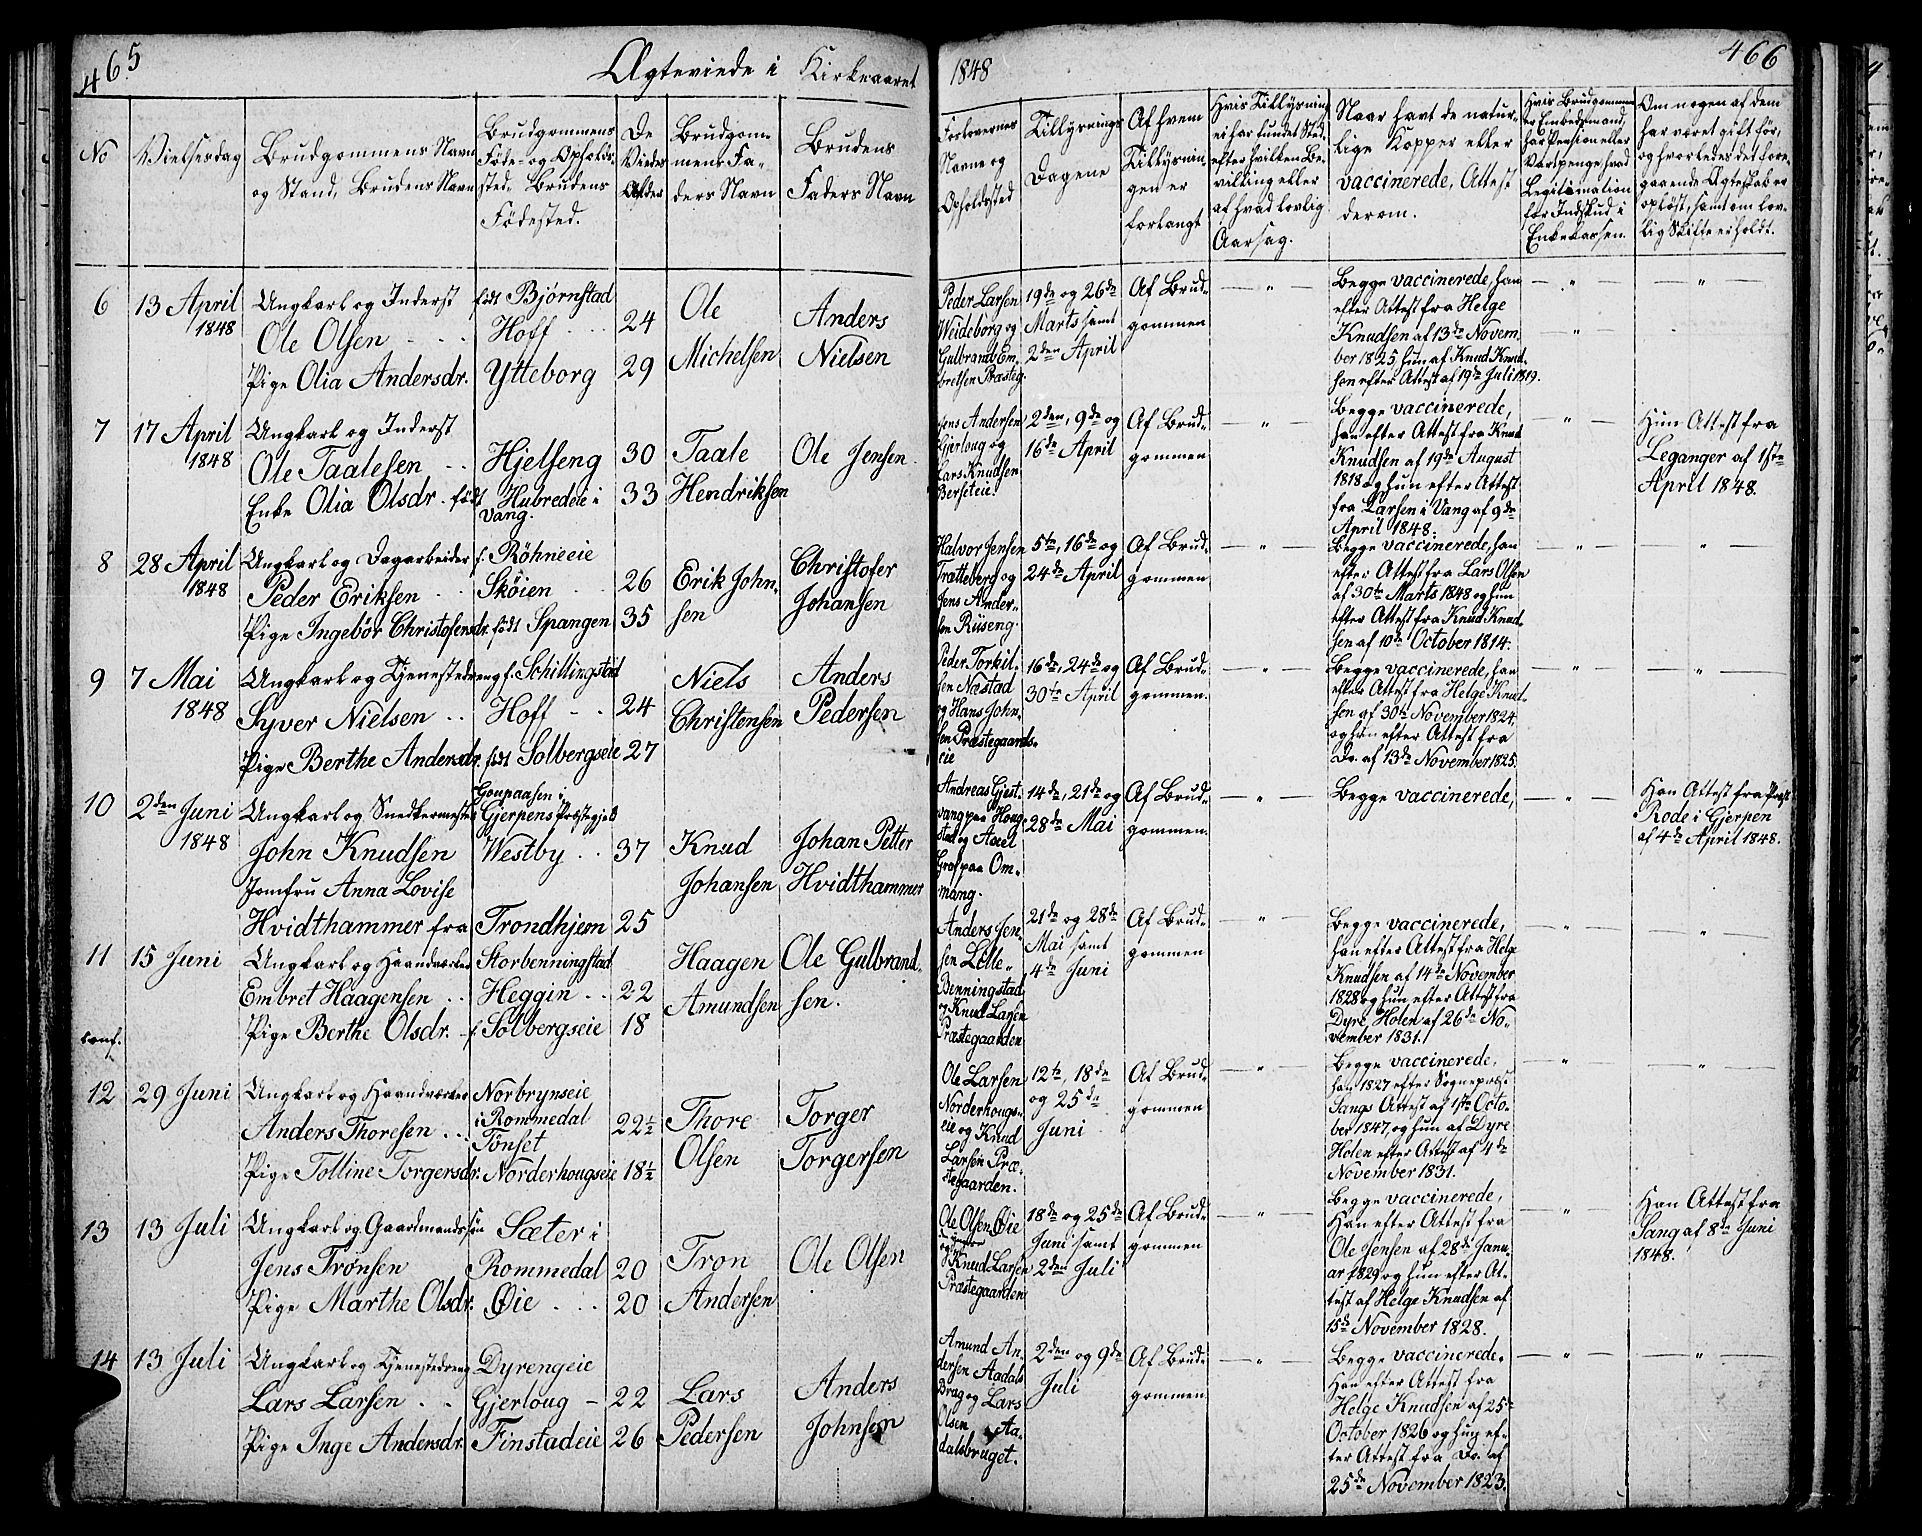 465
Ægteviede i Kirkeaaret
1848
466
No
Vielsesdag
Brudgommens Navn
og Stand, Brudens Navn
Brudgommens
Føde- og Opholds-
sted. Brudens
Fødested.
De
Viedes
Alder
Brudgom-
mens Fa-
ders Navn
Brudens
Faders Navn
Forlovernes
Navne og
Opholdssted
Tillysnings
Dagene
Af hvem
Tillysnin-
gen er
forlangt
Hvis Tillysning
ei har fundet Sted
efter hvilken Be-
villing eller
af hvad lovlig
Aarsag.
Naar havt de natur-
lige Kopper eller
vaccinerede, Attest
derom.
Hvis Brudgommen
er Embedsmand,
har Pension eller
Vartpenge hvad
Legitimation
for Indskud i
Enkekassen.
Om nogen af dem
har været gift før,
og hvorledes det fore-
gaaende Ægteskab er
opløst, samt om lov-
lig Skifte er holdt.
6
13 April
1848
Ungkarl og Inderst
Ole Olsen
Pige Olia Andersdr.
født Bjørnstad
Hoff
Ytteborg
24
29
Ole
Michelsen
Anders
Nielsen
Peder Larsen
Weideborg og
Gulbrand Em-
bretsen Præsteg.
19de og 26de
Marts samt
2den April
Af Brud-
gommen
Begge vaccinerede, han
efter Attest fra Helge
Knudsen af 13de Novem-
ber 1825, hun af Knud Knud-
sen efter Attest af 19de Juli 1819.
7
17 April
1848
Ungkarl og Inderst
Ole Taalesen
Enke Olia Olsdr. født
Hjelseng
Hubredeie i
Vang.
30
33
Taale
Hendriksen
Ole Jensen
Jens Andersen
Gjerloug og
Lars Knudsen
Berseteie.
2den, 9de og
16de April
Af Brud-
gommen
Begge vaccinerede,
han efter Attest fra Knud
Knudsen af 19de August
1818 og hun efter Attest
fra Larsen i Vang af 9de
April 1848.
Hun Attest fra
Leganger af 1ste
April 1848.
8
28 April
1848
Ungkarl og Dagarbeider
Peder Eriksen
Pige Ingebør Christofersdr.
f. Röhneeie
Skøien
født Spangen
26
35
Erik John-
sen
Christofer
Johansen
Halvor Jensen
Tratteberg og
Jens Ander-
sen Riiseng.
5te, 16de og
24de April
Af Brud-
gommen
Begge vaccinerede, han
efter Attest fra Lars Olsen
af 30te Marts 1848 og hun
efter Attest fra Knud Knud-
sen af 10de October 1814.
9
7 Mai
1848
Ungkarl og Tjenestedreng
Syver Nielsen
Pige Berthe Andersdr.
f. Schillingstad
Hoff
født Solbergseie
24
27
Niels
Christensen
Anders
Pedersen
Peder Torkil-
sen Næstad
og Hans John-
sen Præstegaards-
eie
16de, 24de og
30te April
Af Brud-
gommen.
Begge vaccinerede, han
efter Attest fra Helge Knud-
sen af 30te November 1824,
og hun efter Attest fra
Do. af 13de November 1825.
10
2den Juni
1848
Ungkarl og Snedkermester
John Knudsen
Jomfru Anna Lovise
Hvidthammer fra
Goupaasen i
Gjerpens Præstegjeld
Westby
Trondhjem
37
25
Knud
Johansen
Johan Petter
Hvidthammer
Andreas Gjest-
vang paa Houg-
stad og Axel
Grof paa Om-
mang.
14de, 21de og
28de Mai
Af Brud-
gommen.
Begge vaccinerede,
Han Attest fra Præst
Rode i Gjerpen
af 4de April 1848.
11
15 Juni
Ungkarl og Haandværker
Embret Haagensen
Pige Berthe Olsdr.
Storbenningstad
Heggin
f. Solbergseie
22
18
Haagen
Amundsen
Ole Gulbrand-
sen.
Anders Jen-
sen Lille-
Benningstad
og Knud Larsen
Præstegaarden
21de og 28de
Mai samt
4de Juni
Af Brud-
gommen
Begge vaccinerede,
han efter Attest fra Helge
Knudsen af 14de November
1828 og hun efter Attest fra
Dyre Holen af 26de No-
vember 1831.
conf.
12
29 Juni
Ungkarl og Haandværker
Anders Thoresen
Pige Tolline Torgersdr.
Norbrynseie
i Rommedal
Tönset
Norderhougseie
22½
18½
Thore
Olsen
Torger
Torgersen
Ole Larsen
Norderhougs-
eie og Knud
Larsen Præ-
stegaarden.
12te, 18de
og 25de
Juni
Af Brud-
gommen
Begge vaccinerede,
han 1827 efter Sognepræst
Sangs Attest af 1ste Octo-
ber 1847, og hun af Dyre
Holen efter Attest af 4de
November 1831.
13
13 Juli
Ungkarl og Gaardmandssøn
Jens Trønsen
Pige Marthe Olsdr.
Sæter i
Rommedal
Øie
20
20
Tron
Andersen
Ole Olsen
Ole Olsen Øie
og
Knud Larsen
Præstegaarden
18de og 25de
Juni samt
2den Juli
Af Brud-
gommen
Begge vaccinerede,
Han efter Attest fra
Ole Jensen af 28de Janu-
ar 1829 og hun efter At-
test af Helge Knudsen af
15de November 1828.
Han Attest fra
Sang af 8de Juni
1848.
14
13 Juli
Ungkarl og Tjenestedreng
Lars Larsen
Pige Inge Andersdr.
Dyrengeie
Gjerloug
Finstadeie
22
26
Lars
Pedersen
Anders
Johnsen
Amund An-
dersen Aadals
Brug og Lars
Olsen Aa-
dalsbruget.
2den og 9de
Juli
Af Brud-
gommen.
Begge vaccinerede.
Han efter Attest fra
Helge Knudsen af 25de
October 1826 og hun ef-
ter Attest fra Do. af
25de November 1823.